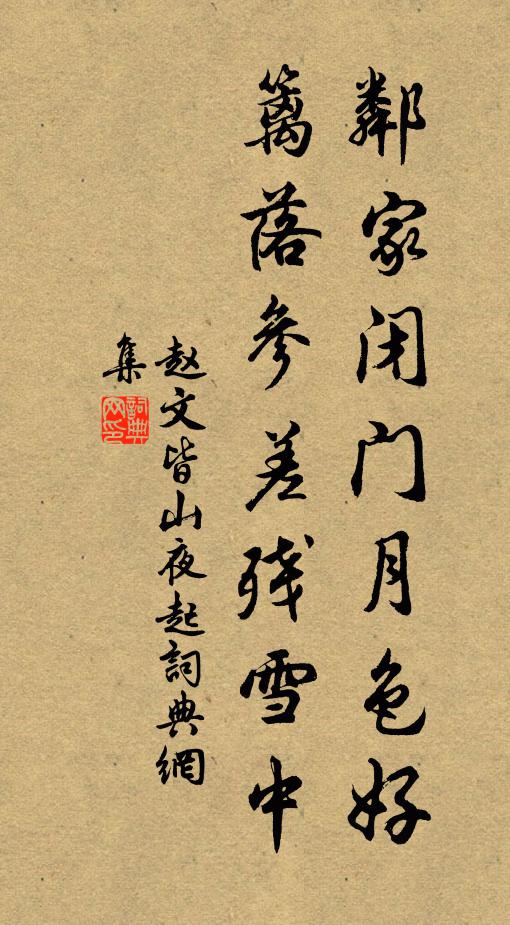 鄰家闭门月色好
篱落參差残雪中
赵文皆山夜起詞典網
集
詞典
网印